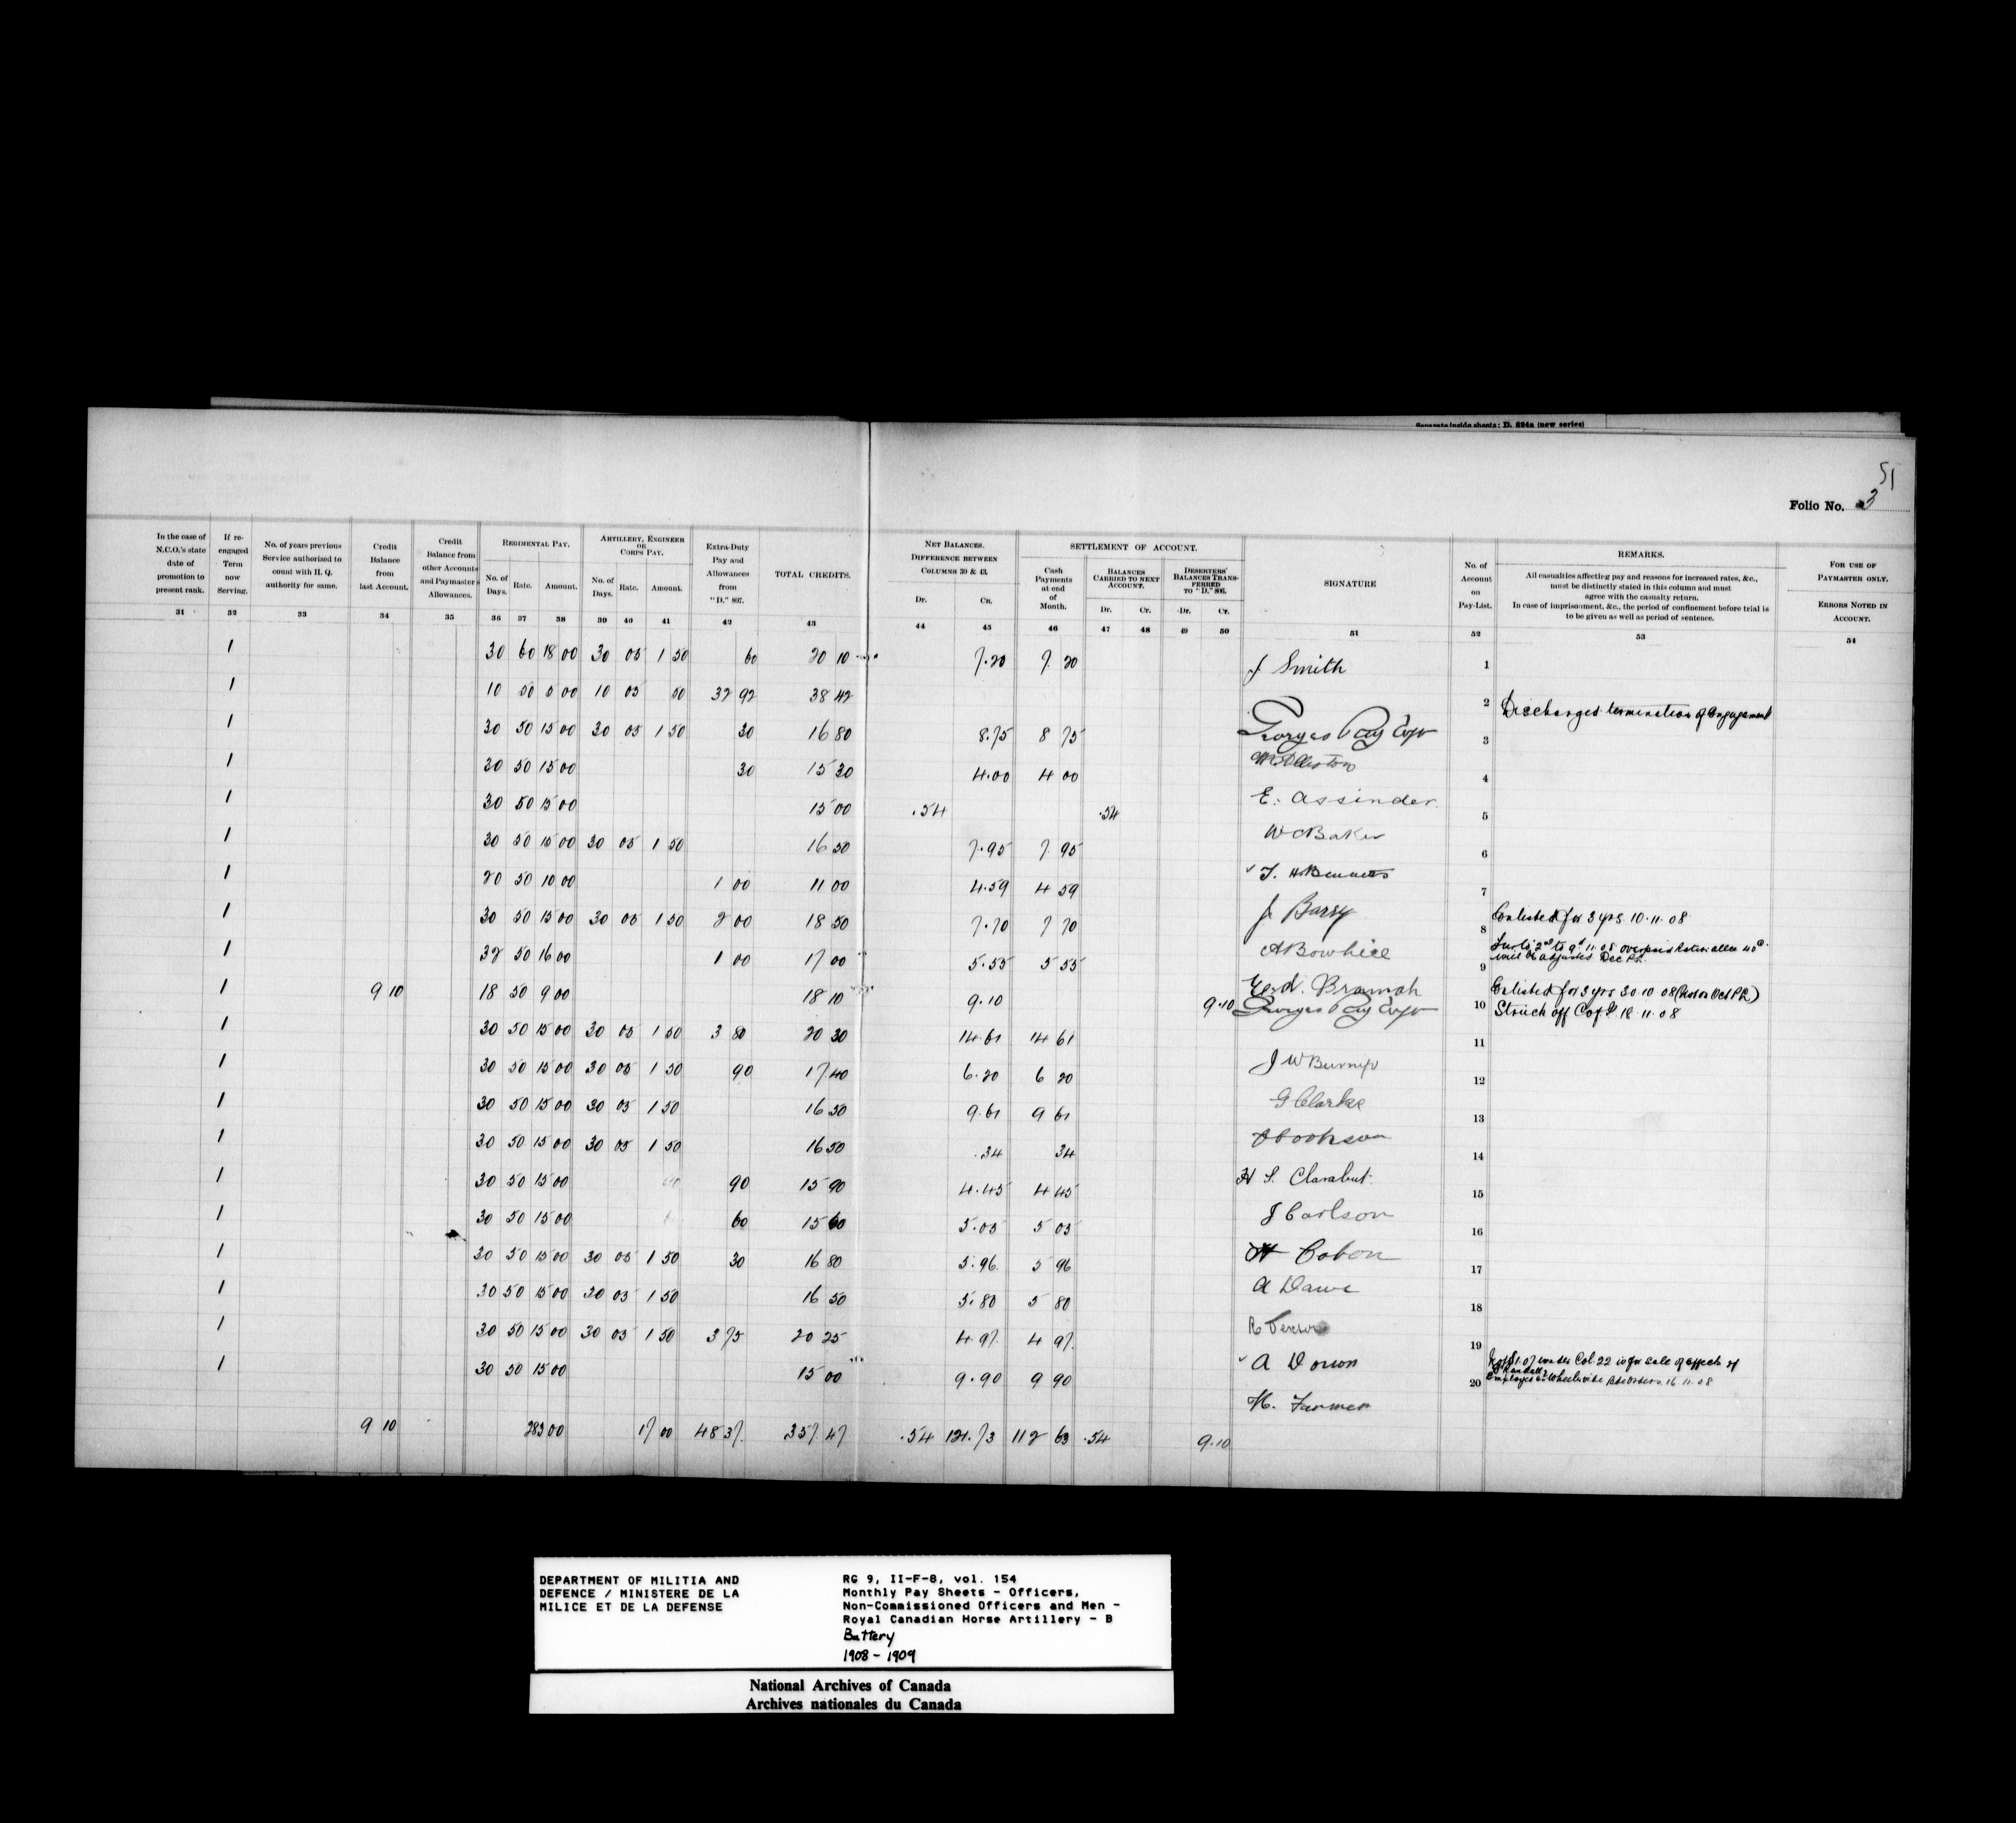 Separate inside sheets: D. 824a (new series)
51
Folio No. 3
In the case of N.C.O.'s state date of promotion to present rank.
If re-engaged Term now Serving.
No. of years previous Service authorized to count with H. Q. authority for same.
Credit Balance from last Account.
Credit Balance from other Accounts and Paymaster's Allowances.
REGIMENTAL PAY.
No. of Days. Rate. Amount.
ARTILLERY, ENGINEER OR CORPS PAY.
No. of Days. Rate. Amount.
Extra-Duty Pay and Allowances from "D." 807.
TOTAL CREDITS.
NET BALANCES.
DIFFERENCE BETWEEN COLUMNS 30 & 43.
Dr. Cr.
SETTLEMENT OF ACCOUNT.
Cash Payments at end of Month.
BALANCES CARRIED TO NEXT ACCOUNT.
Dr. Cr.
DESERTERS' BALANCES TRANSFERRED TO "D." 806.
Dr. Cr.
SIGNATURE
No. of Account on Pay-List.
REMARKS.
All casualties affecting pay and reasons for increased rates, &c., must be distinctly stated in this column and must agree with the casualty return.
In case of imprisonment, &c., the period of confinement before trial is to be given as well as period of sentence.
FOR USE OF PAYMASTER ONLY.
ERRORS NOTED IN ACCOUNT.
31 32 33 34 35 36 37 38 39 40 41 42 43 44 45 46 47 48 49 50 51 52 53 54
1 30 60 18 00 30 05 1 50 60 20 10 7.20 7 20 J Smith 1
1 10 50 5 00 10 05 50 32 92 38 42 2 Discharged termination of Engagement
1 30 50 15 00 30 05 1 50 30 16 80 8.75 8 75 3
1 30 50 15 00 30 15 30 4.00 4 00 4
1 30 50 15 00 15 00 .54 .54 E. Assinder 5
1 30 50 15 00 30 05 1 50 16 50 7.95 7 95 W C Baker 6
1 20 50 10 00 1 00 11 00 4.59 4 59 T. H Bennetts 7
1 30 50 15 00 30 05 1 50 2 00 18 50 7.70 7 70 J Barry 8 Enlisted for 3 yrs 10.11.08
1 32 50 16 00 1 00 17 00 5.55 5 55 A Bowhill 9
1 9 10 18 50 9 00 18 10 9.10 9.10 Bramah 10 Enlisted for 3 yrs 30 10 08 (Not on Oct P L)
Struck off 18.11.08
1 30 50 15 00 30 05 1 50 3 80 20 30 14.61 14 61 11
1 30 50 15 00 30 05 1 50 90 17 40 6.20 6 20 J W Burnip 12
1 30 50 15 00 30 05 1 50 16 50 9.61 9 61 G Clarke 13
1 30 50 15 00 30 05 1 50 16 50 .34 34 Cookson 14
1 30 50 15 00 90 15 90 4.45 4 45 H S. Clarabut 15
1 30 50 15 00 60 15 60 5.05 5 05 J Carlson 16
1 30 50 15 00 30 05 1 50 30 16 80 5.96 5 96 H Cobon 17
1 30 50 15 00 30 05 1 50 16 50 5.80 5 80 A Dawe 18
1 30 50 15 00 30 05 1 50 3 75 20 25 4.97 4 97 19
1 30 50 15 00 15 00 9.90 9 90 A Dorion 20
H. Farmer
9 10 283 00 17 00 48 37 357 47 .54 121.73 112 63 .54 9.10
DEPARTMENT OF MILITIA AND
DEFENCE / MINISTERE DE LA
MILICE ET DE LA DEFENSE
RG 9, II-F-8, vol. 154
Monthly Pay Sheets - Officers,
Non-Commissioned Officers and Men -
Royal Canadian Horse Artillery - B
Battery
1908 - 1909
National Archives of Canada
Archives nationales du Canada